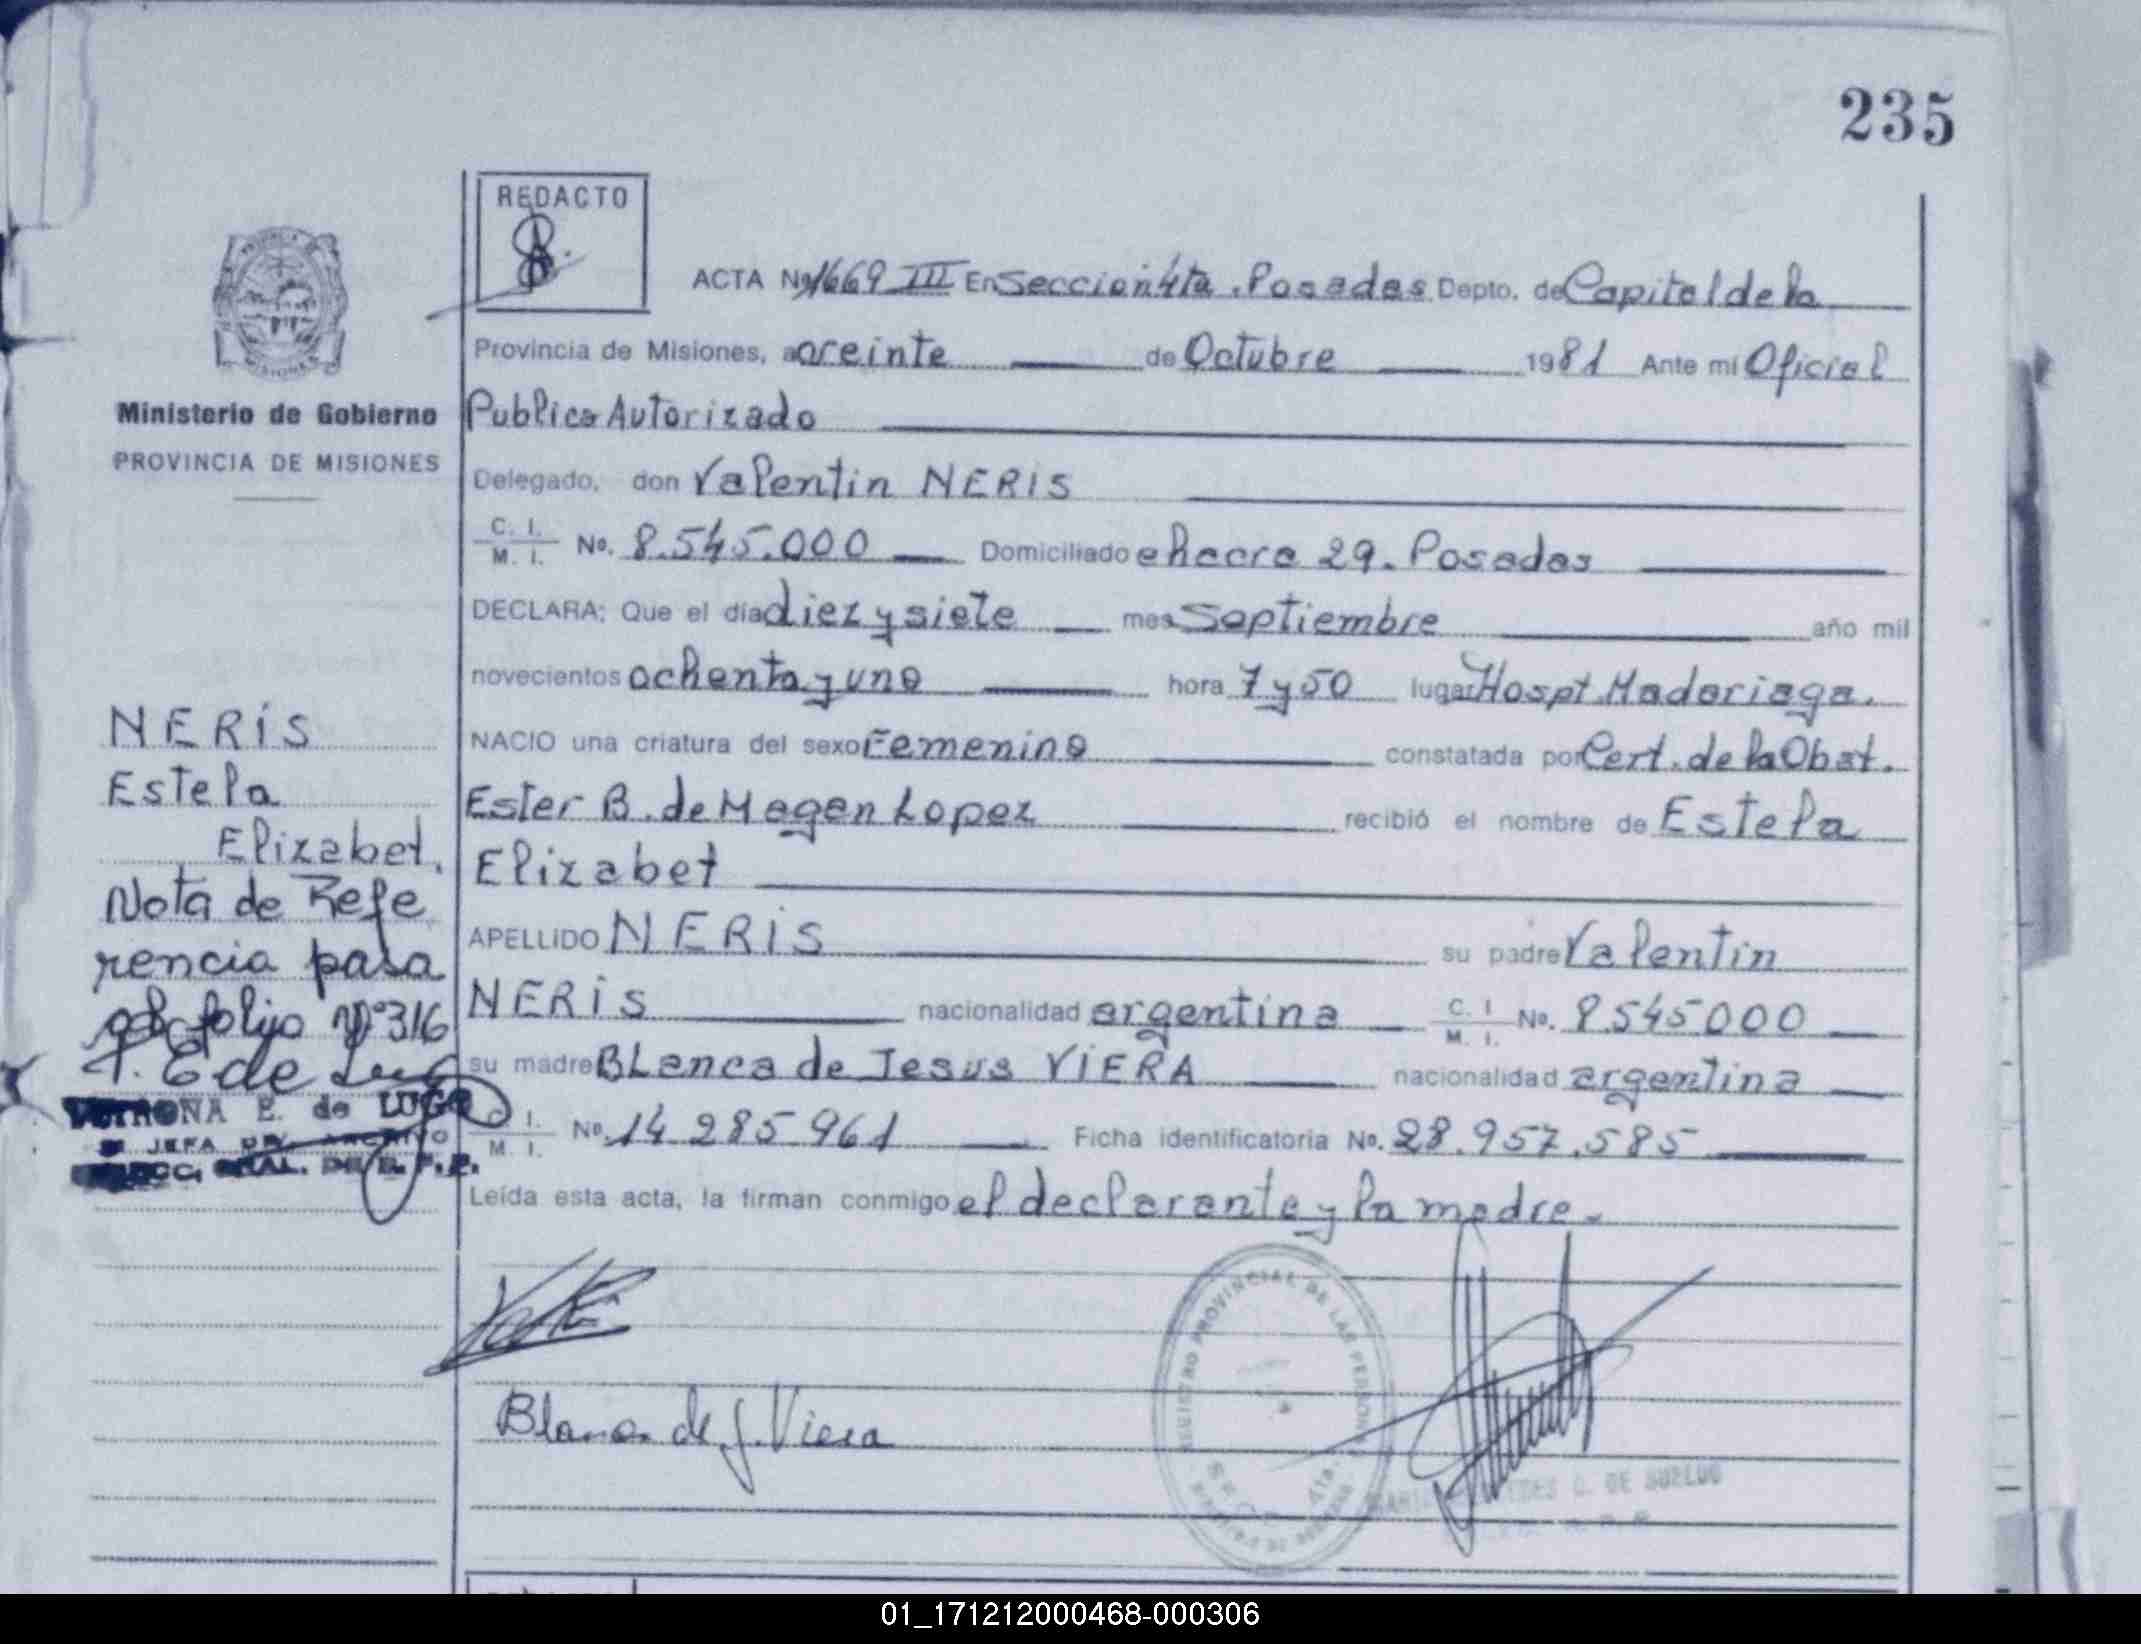 235
REDACTO
ACTA No 1669 III En Seccion 4ta. Posadas Depto. de Capital de la
Provincia de Misiones, a treinta de Octubre 1981 Ante mí Oficial
Ministerio de Gobierno
PROVINCIA DE MISIONES
Publico Autorizado
Delegado, don Valentin NERIS
C. I.
M. I. No. 8.545.000 Domiciliado chacra 29. Posadas
DECLARA: Que el día diez y siete mes Septiembre año mil
novecientos ochenta y uno hora 7 y 50 lugar Hospt. Madariaga.
NACIO una criatura del sexo Femenino constatada por Cert. de la Obst.
Ester B. de Magen Lopez recibió el nombre de Estela
Elizabet
APELLIDO NERIS su padre Valentin
NERIS nacionalidad argentina C. I. M. I. No. 8.545000
su madre BLanca de Jesus VIERA nacionalidad argentina
C. I.
M. I. No. 14.285.961 Ficha identificatoria No. 28.957.585
Leída esta acta, la firman conmigo el declarante y la madre.
NERIS
Estela
Elizabet.
Nota de Refe
rencia pasa
al folio Nº 316
E. de LUGO
JEFA DEL ARCHIVO
GRAL. DE R. P. P.
Blanca de J. Viera
REGISTRO PROVINCIAL DE LAS PERSONAS
4ta.
DE SUELDO
01_171212000468-000306